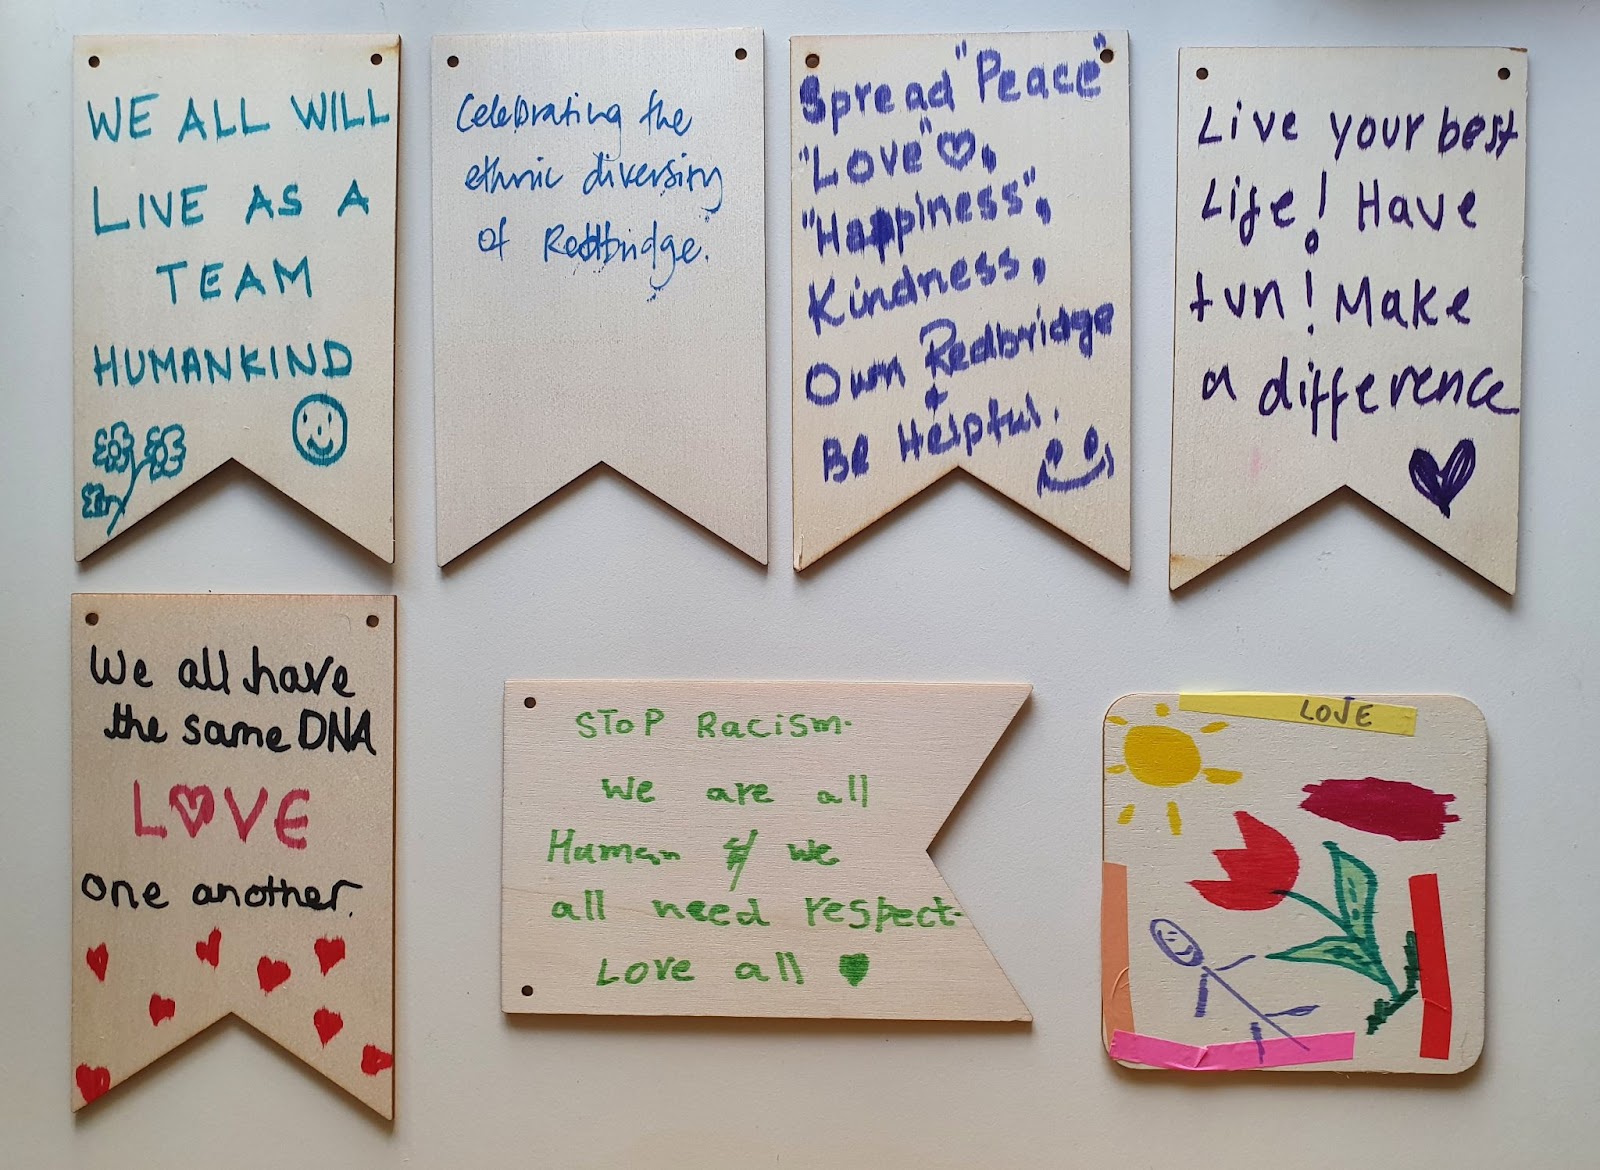 WE ALL WILL
LIVE AS A
TEAM
HUMANKIND
Celebrating the
ethnic diversity
of Redbridge.
Spread "Peace"
"Love",
"Happiness",
Kindness,
Own Redbridge
+
Be Helpful.
Live your best
Life! Have
fun! Make
a difference
We all have
the same DNA
LOVE
one another.
STOP Racism.
We are all
Human & we
all need respect.
Love all
LOJE